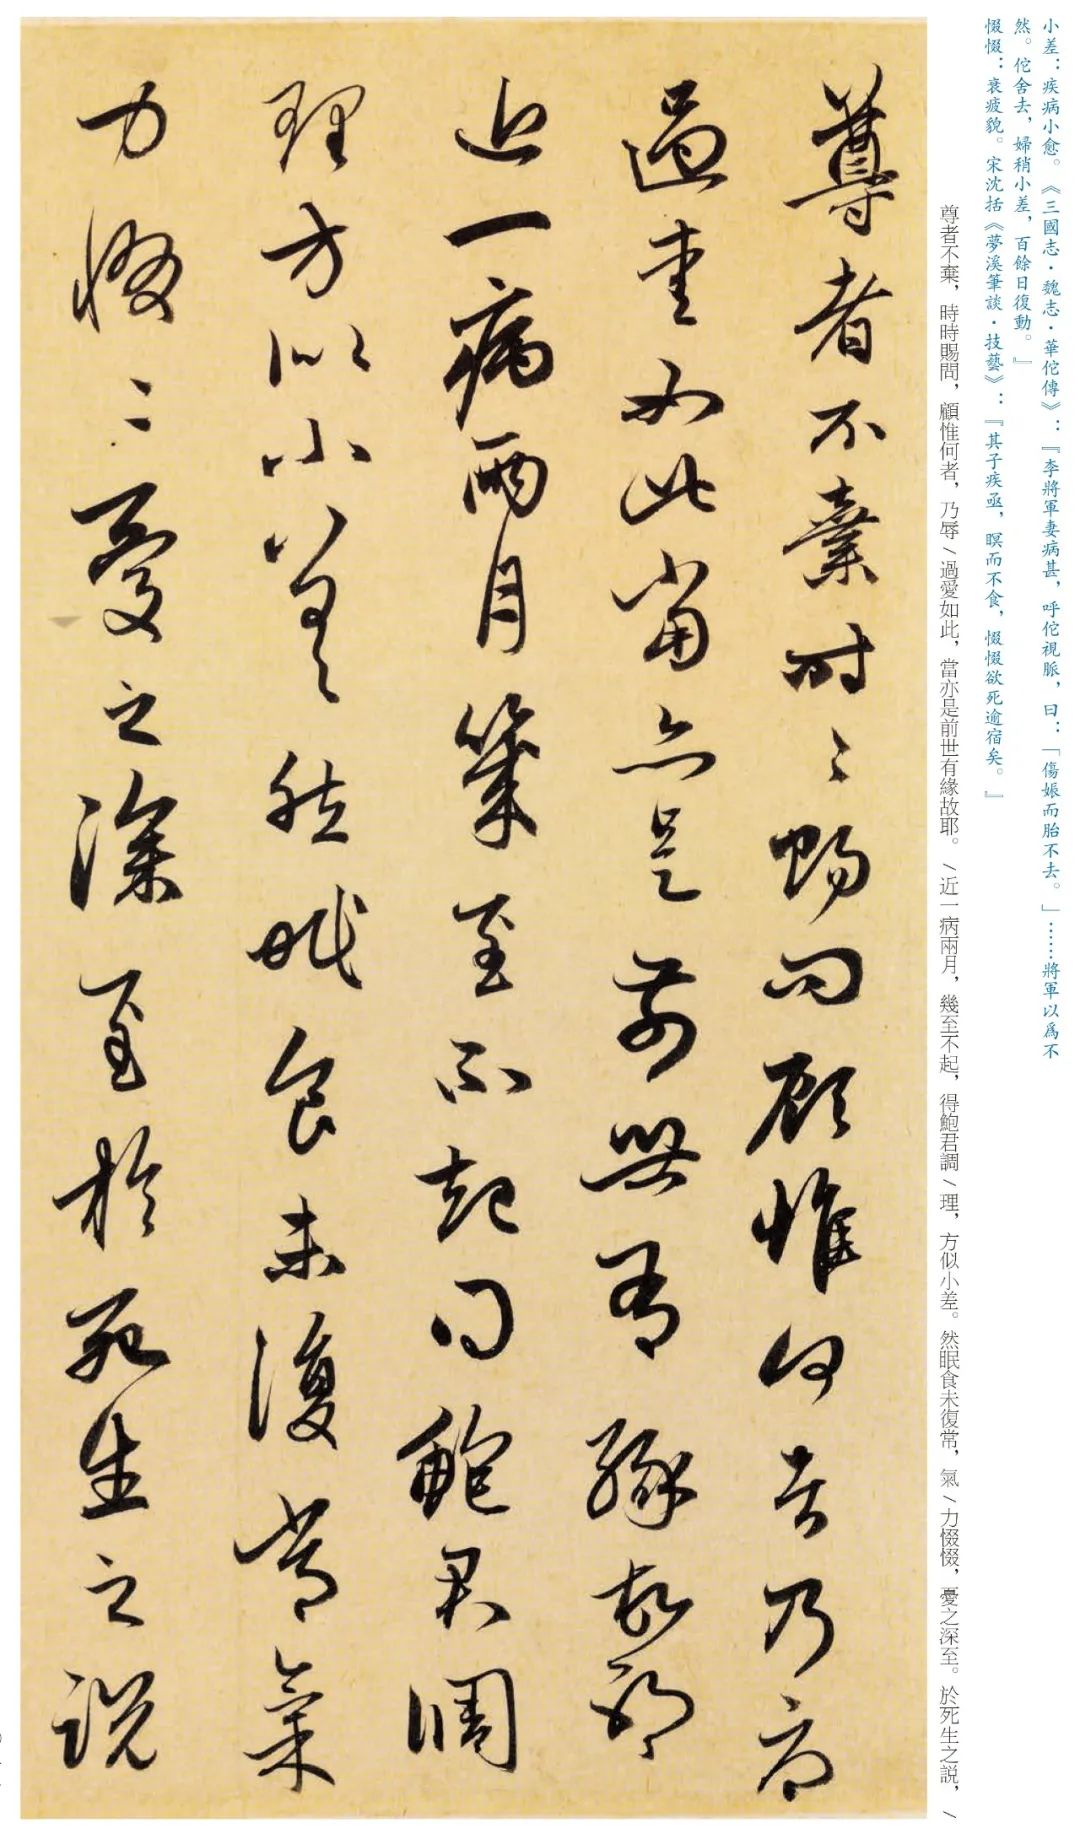 小差：疾病小愈。《三國志·魏志·華佗傳》：『李將軍妻病甚，呼佗視脈，曰：「傷娠而胎不去。」……將軍以爲不
然。佗舍去，婦稍小差，百餘日復動。』
惙惙：衰疲貌。宋沈括《夢溪筆談·技藝》：『其子疾亟，瞑而不食，惙惙欲死逾宿矣。』
尊者不棄，時時賜問，顧惟何者，乃辱\過愛如此，當亦是前世有緣故耶。\近一病兩月，幾至不起，得鮑君調\理，方似小差。然眠食未復常，氣\力惙惙，憂之深至。於死生之説，\
尊者不棄時〻賜問顧惟何者乃辱
過愛如此當亦是前世有緣故耶
近一病兩月幾至不起得鮑君調
理方似小差然眠食未復常氣
力惙〻憂之深至於死生之説